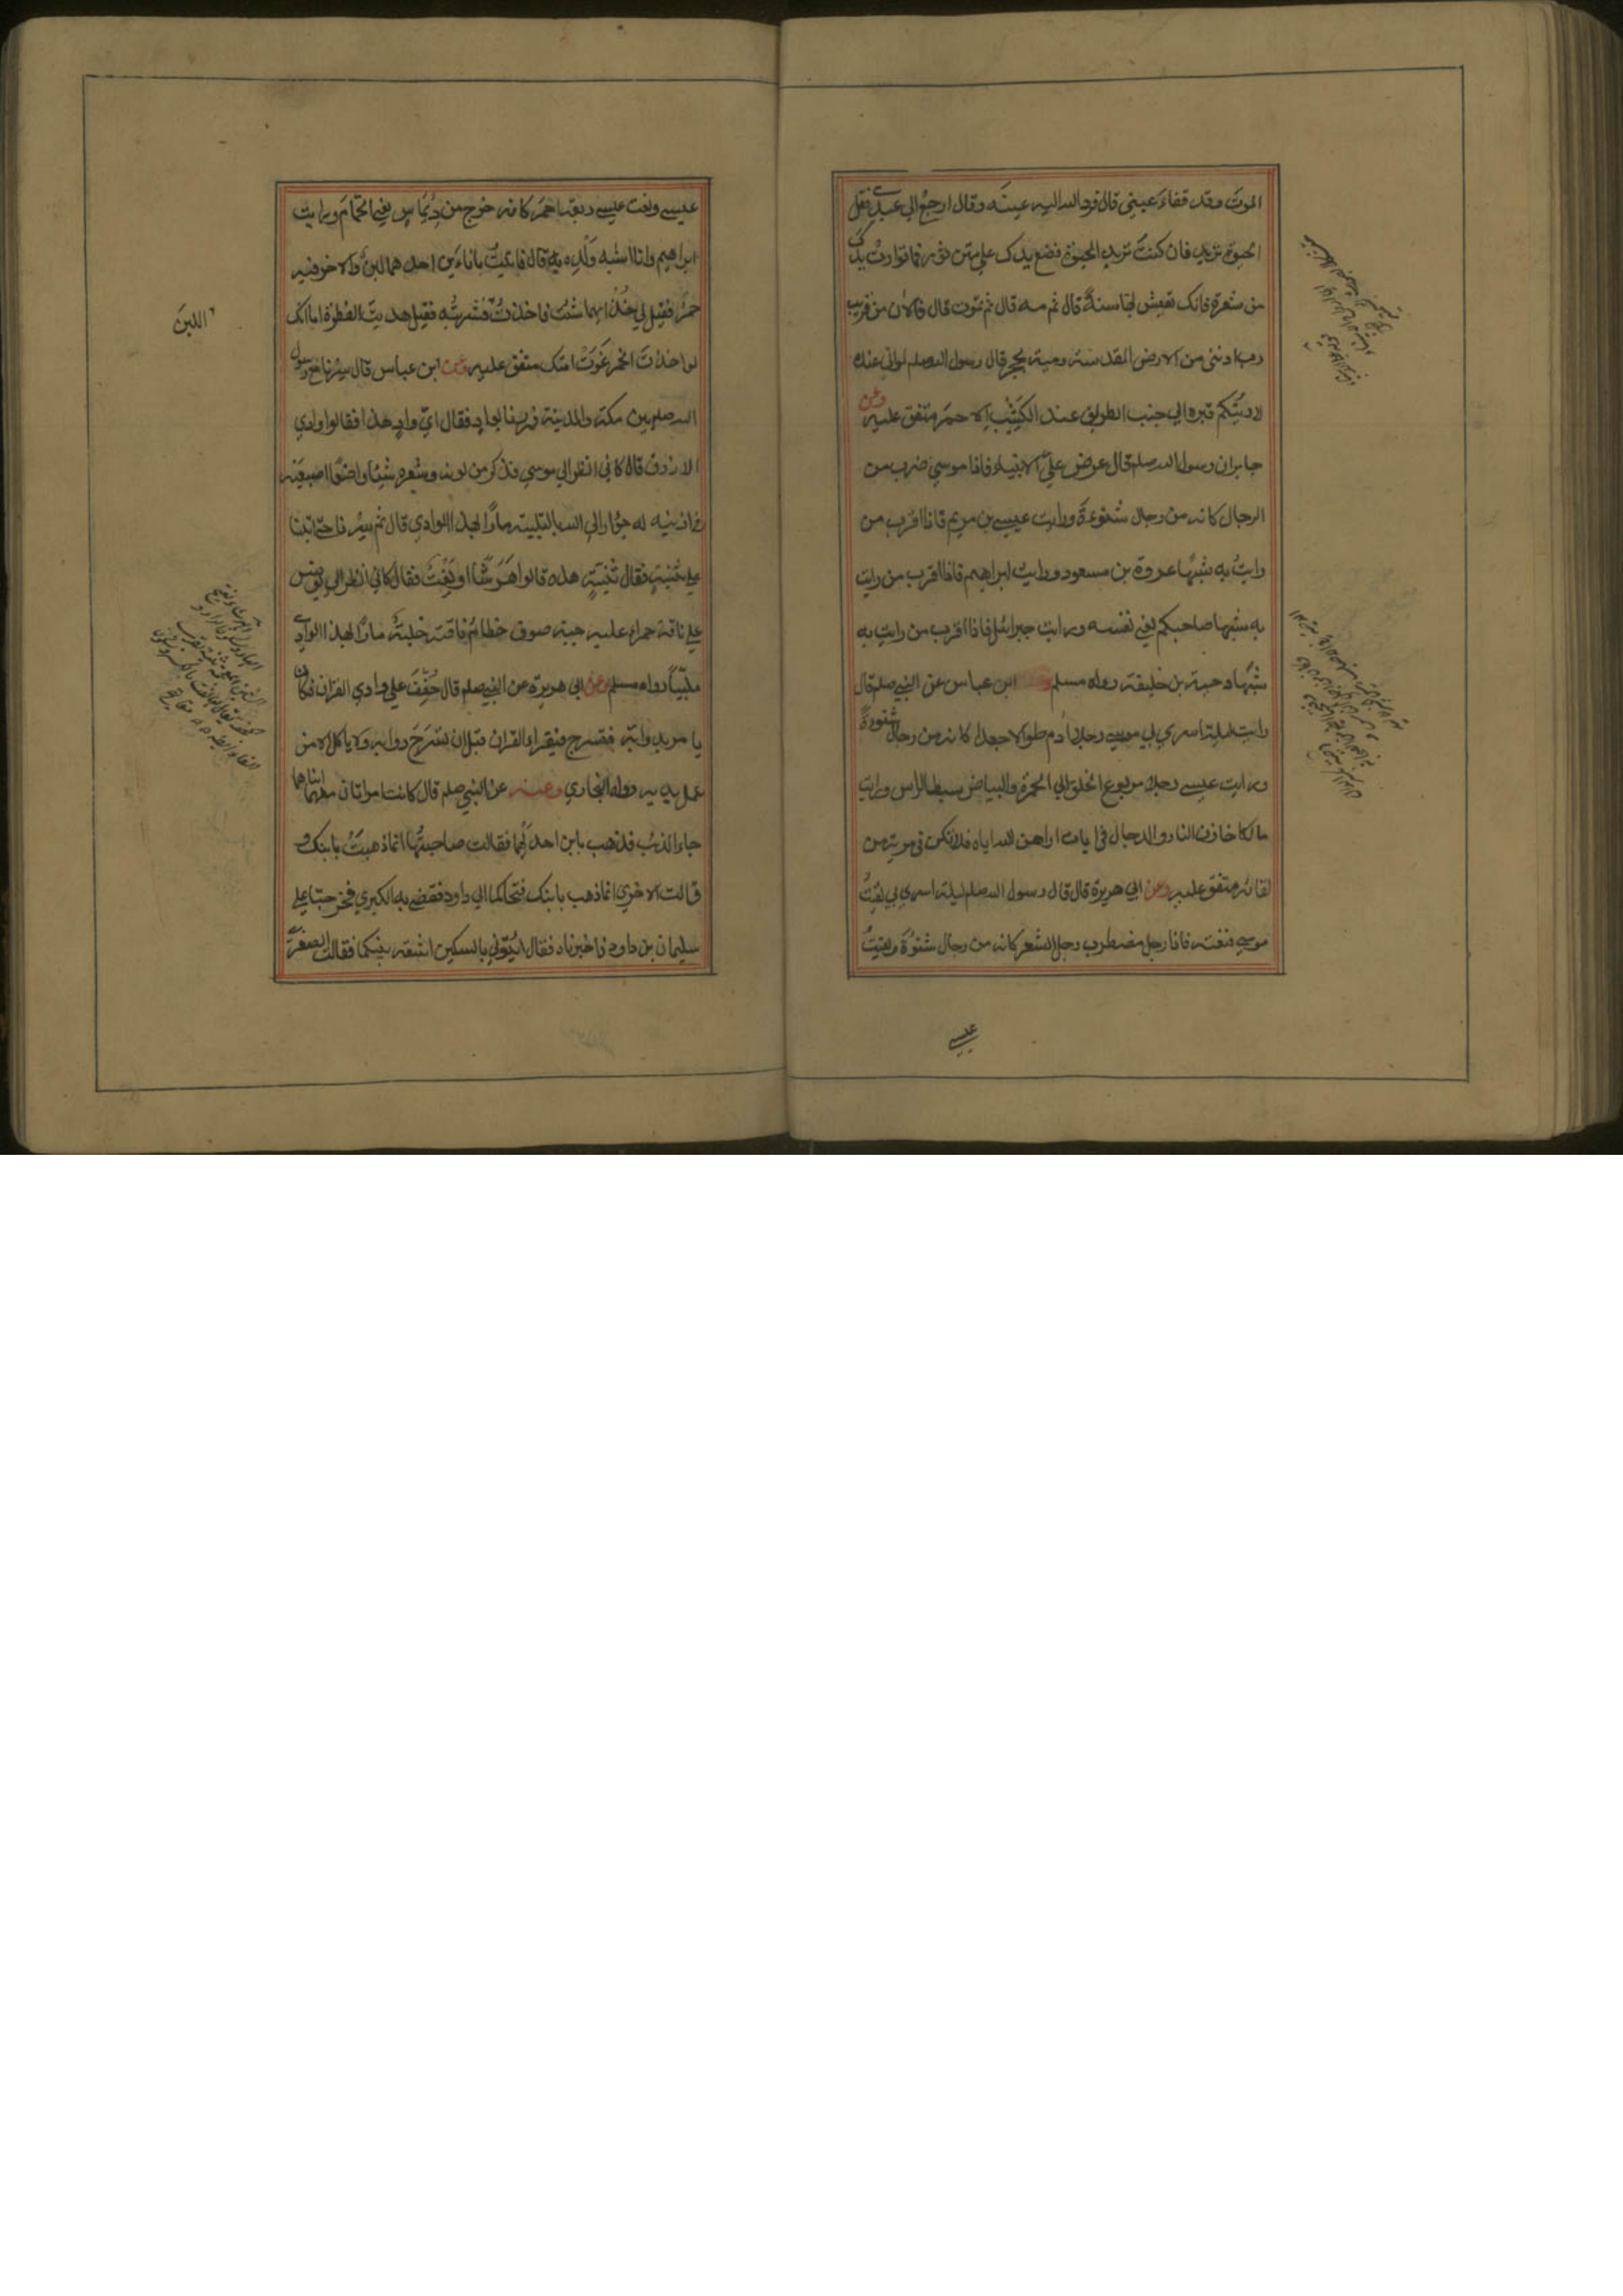 الموت وقد فقاء عيني قال فرد الله اليه عينه وقال ارجع الي عبدي فقل
الحيوة تريد فان كنت تريد الحيوة فضع يدك علي متن ثور فما توارت يدك
من شعره فانك تعيش بها سنة قال ثم مه قال ثم تموت قال فالان من قريب
رب ادنني من الارض المقدسة رمية بحجر قال رسول الله صلم لو اني عنده
لاريتكم قبره الي جنب الطريق عند الكثيب الاحمر متفق عليه وعن
جابر ان رسول الله صلم قال عرض علي الانبياء فاذا موسي ضرب من
الرجال كانه من رجال شنوءة ورايت عيسي بن مريم فاذا اقرب من
رايت به شبها عروة بن مسعود ورايت ابراهيم فاذا اقرب من رايت
به شبها صاحبكم يعني نفسه ورايت جبرائيل فاذا اقرب من رايت به
شبها دحية بن خليفة رواه مسلم وعن ابن عباس عن النبي صلم قال
رايت ليلة اسري بي موسي رجلا ادم طوالا جعدا كانه من رجال شنوءة
ورايت عيسي رجلا مربوع الخلق الي الحمرة والبياض سبط الراس ورايت
مالكا خازن النار والدجال في ايات اراهن الله اياه فلا تكن في مرية من
لقائه متفق عليه وعن ابي هريرة قال قال رسول الله صلم ليلة اسري بي لقيت
موسي فنعته فاذا رجل مضطرب رجل الشعر كانه من رجال شنوءة ولقيت
عيسي
عيسي ولقيت عيسي ربعة احمر كانه خرج من ديماس يعني الحمام ورايت
ابراهيم وانا اشبه ولده به قال فاتيت باناءين احدهما لبن والاخر فيه
خمر فقيل لي خذ ايهما شئت فاخذت فشربته فقيل هديت الفطرة اما انك
اللبن
لو اخذت الخمر غوت امتك متفق عليه وعن ابن عباس قال سرنا مع رسول
الله صلم بين مكة والمدينة فمررنا بواد فقال اي واد هذا فقالوا وادي
الازرق قال كاني انظر الي موسي فذكر من لونه وشعره شيئا واضعا اصبعيه
في اذنيه له جؤار الي الله بالتلبية مارا بهذا الوادي قال ثم سرنا حتي اتينا
علي ثنية فقال اي ثنية هذه قالوا هرشا او لفت فقال كاني انظر الي يونس
علي ناقة حمراء عليه جبة صوف خطام ناقته خلبة مارا بهذا الوادي
ملبيا رواه مسلم وعن ابي هريرة عن النبي صلم قال خفف علي داود القران فكان
يامر بدوابه فتسرج فيقراء القران قبل ان تسرج دوابه ولا ياكل الا من
عمل يديه رواه البخاري وعنه عن النبي صلم قال كانت امراتان معهما ابناهما
جاء الذئب فذهب بابن احدهما فقالت صاحبتها انما ذهب بابنك و
قالت الاخري انما ذهب بابنك فتحاكما الي داود فقضي به للكبري فخرجتا علي
سليمان بن داود فاخبرتاه فقال ايتوني بالسكين اشقه بينكما فقالت الصغري